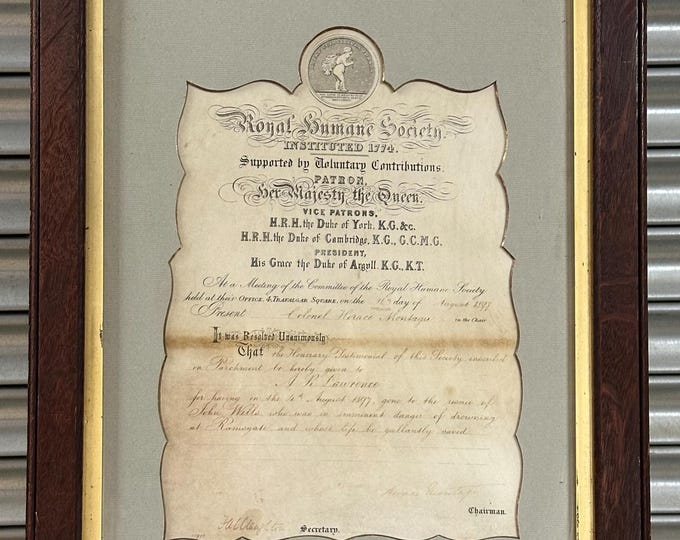 Royal Humane Society.
INSTITUTED 1774.
Supported by Voluntary Contributions.
PATRON,
Her Majesty the Queen.
VICE PATRONS,
H.R.H. the Duke of York, K.G. &c.
H.R.H. the Duke of Cambridge, K.G., G.C.M.G.
PRESIDENT,
His Grace the Duke of Argyll. K.G., K.T.
At a Meeting of the Committee of the Royal Humane Society
held at their OFFICE, 4, TRAFALGAR SQUARE, on the 16th day of August 1897
Present Colonel Horace Montagu in the Chair
It was Resolved Unanimously
That the Honorary Testimonial of this Society inscribed
on Parchment be hereby given to
A. R. Lawrence
for having on the 4th August 1897, gone to the rescue of
John Wells who was in imminent danger of drowning
at Ramsgate and whose life he gallantly saved
Horace Montagu
Chairman.
Secretary.